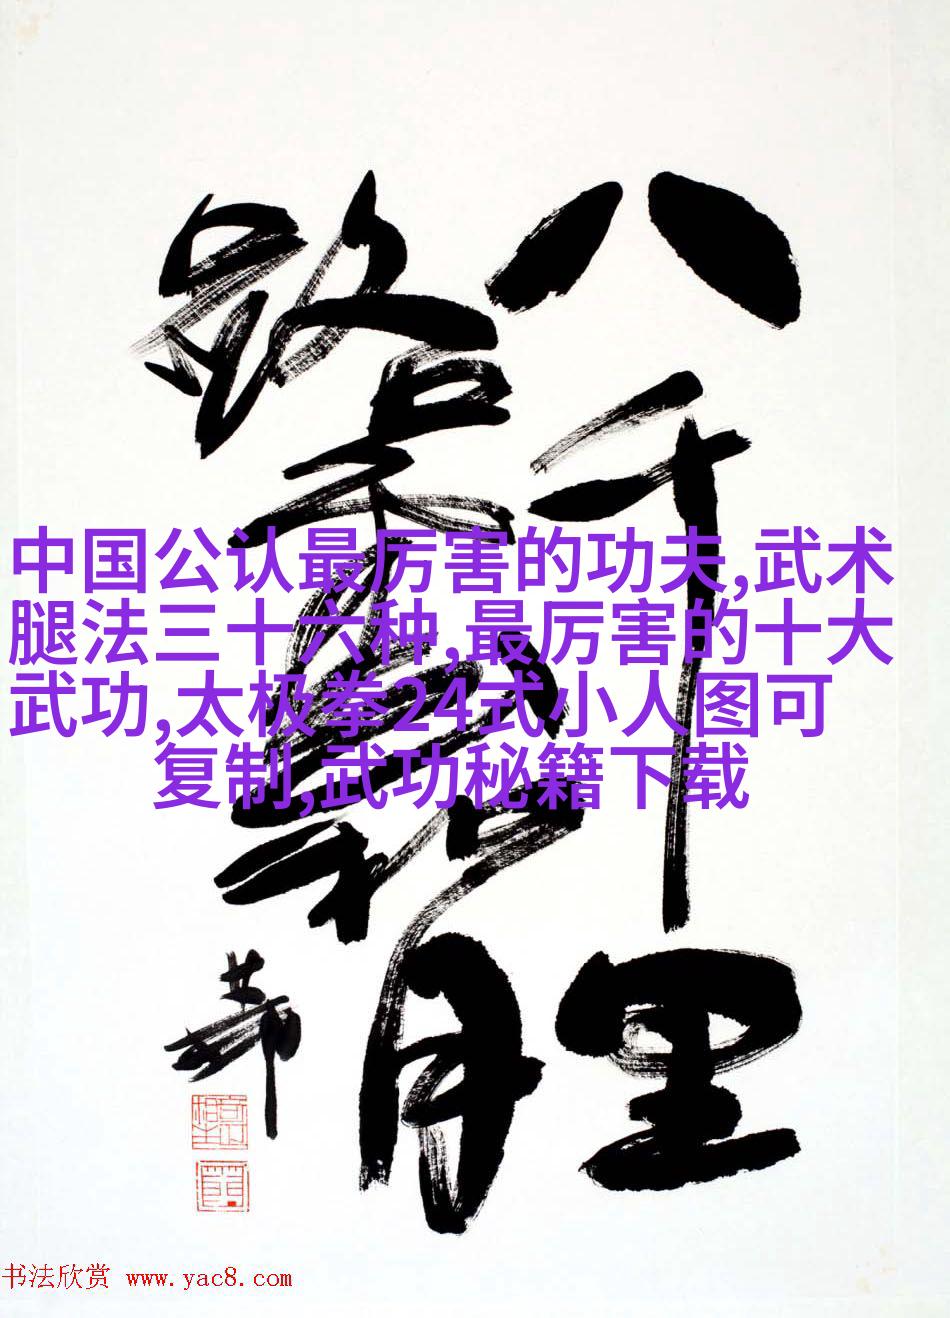 八千里
路云和月
中国公认最厉害的功夫,武术
腿法三十六种,最厉害的十大
武功,太极拳24式小人图可
复制,武功秘籍下载
书法欣赏 www.yac8.com